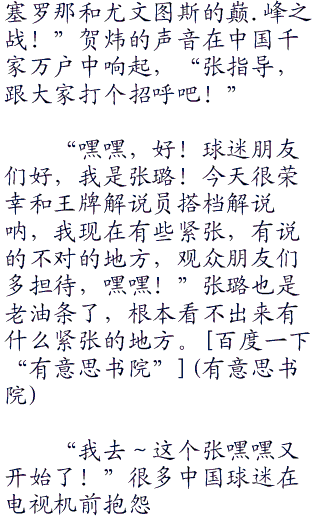 塞罗那和尤文图斯的巅.峰之
战！”贺炜的声音在中国千
家万户中响起，“张指导，
跟大家打个招呼吧！”
“嘿嘿，好！球迷朋友
们好，我是张璐！今天很荣
幸和王牌解说员搭档解说
呐，我现在有些紧张，有说
的不对的地方，观众朋友们
多担待，嘿嘿！”张璐也是
老油条了，根本看不出来有
什么紧张的地方。[百度一下
“有意思书院”](有意思书
院)
“我去～这个张嘿嘿又
开始了！”很多中国球迷在
电视机前抱怨